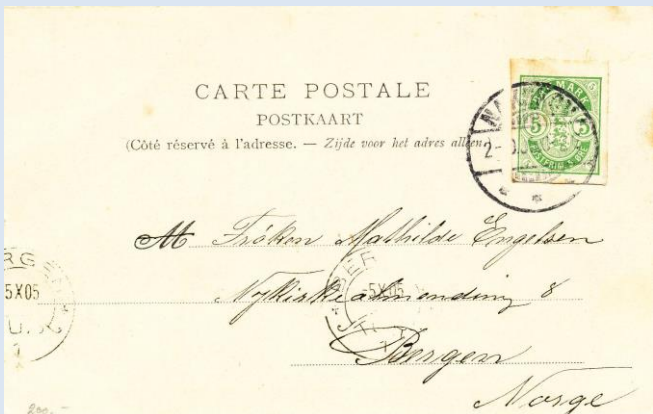 CARTE POSTALE
POSTKAART
(Côté réservé à l'adresse. — Zijde voor het adres alleen
DANMARK
5 5
POSTFRIM. 5 ØRE
M Frøken Mathilde Engelsen
Nykirkealmending 8
Bergen
Norge
RG
5X05
BER
-5X05
200.-